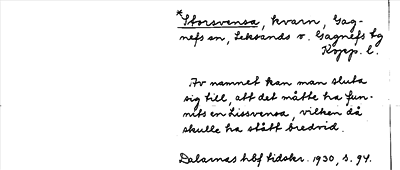 *Storsvensa, kvarn, Gag-
nefs sn, Leksands o. Gagnefs tg
Kopp. l.
Av namnet kan man sluta
sig till, att det måtte ha fun-
nits en Lissvensa, vilken då
skulle ha stått bredvid.
Dalarnas hbf tidskr. 1930, s. 94.